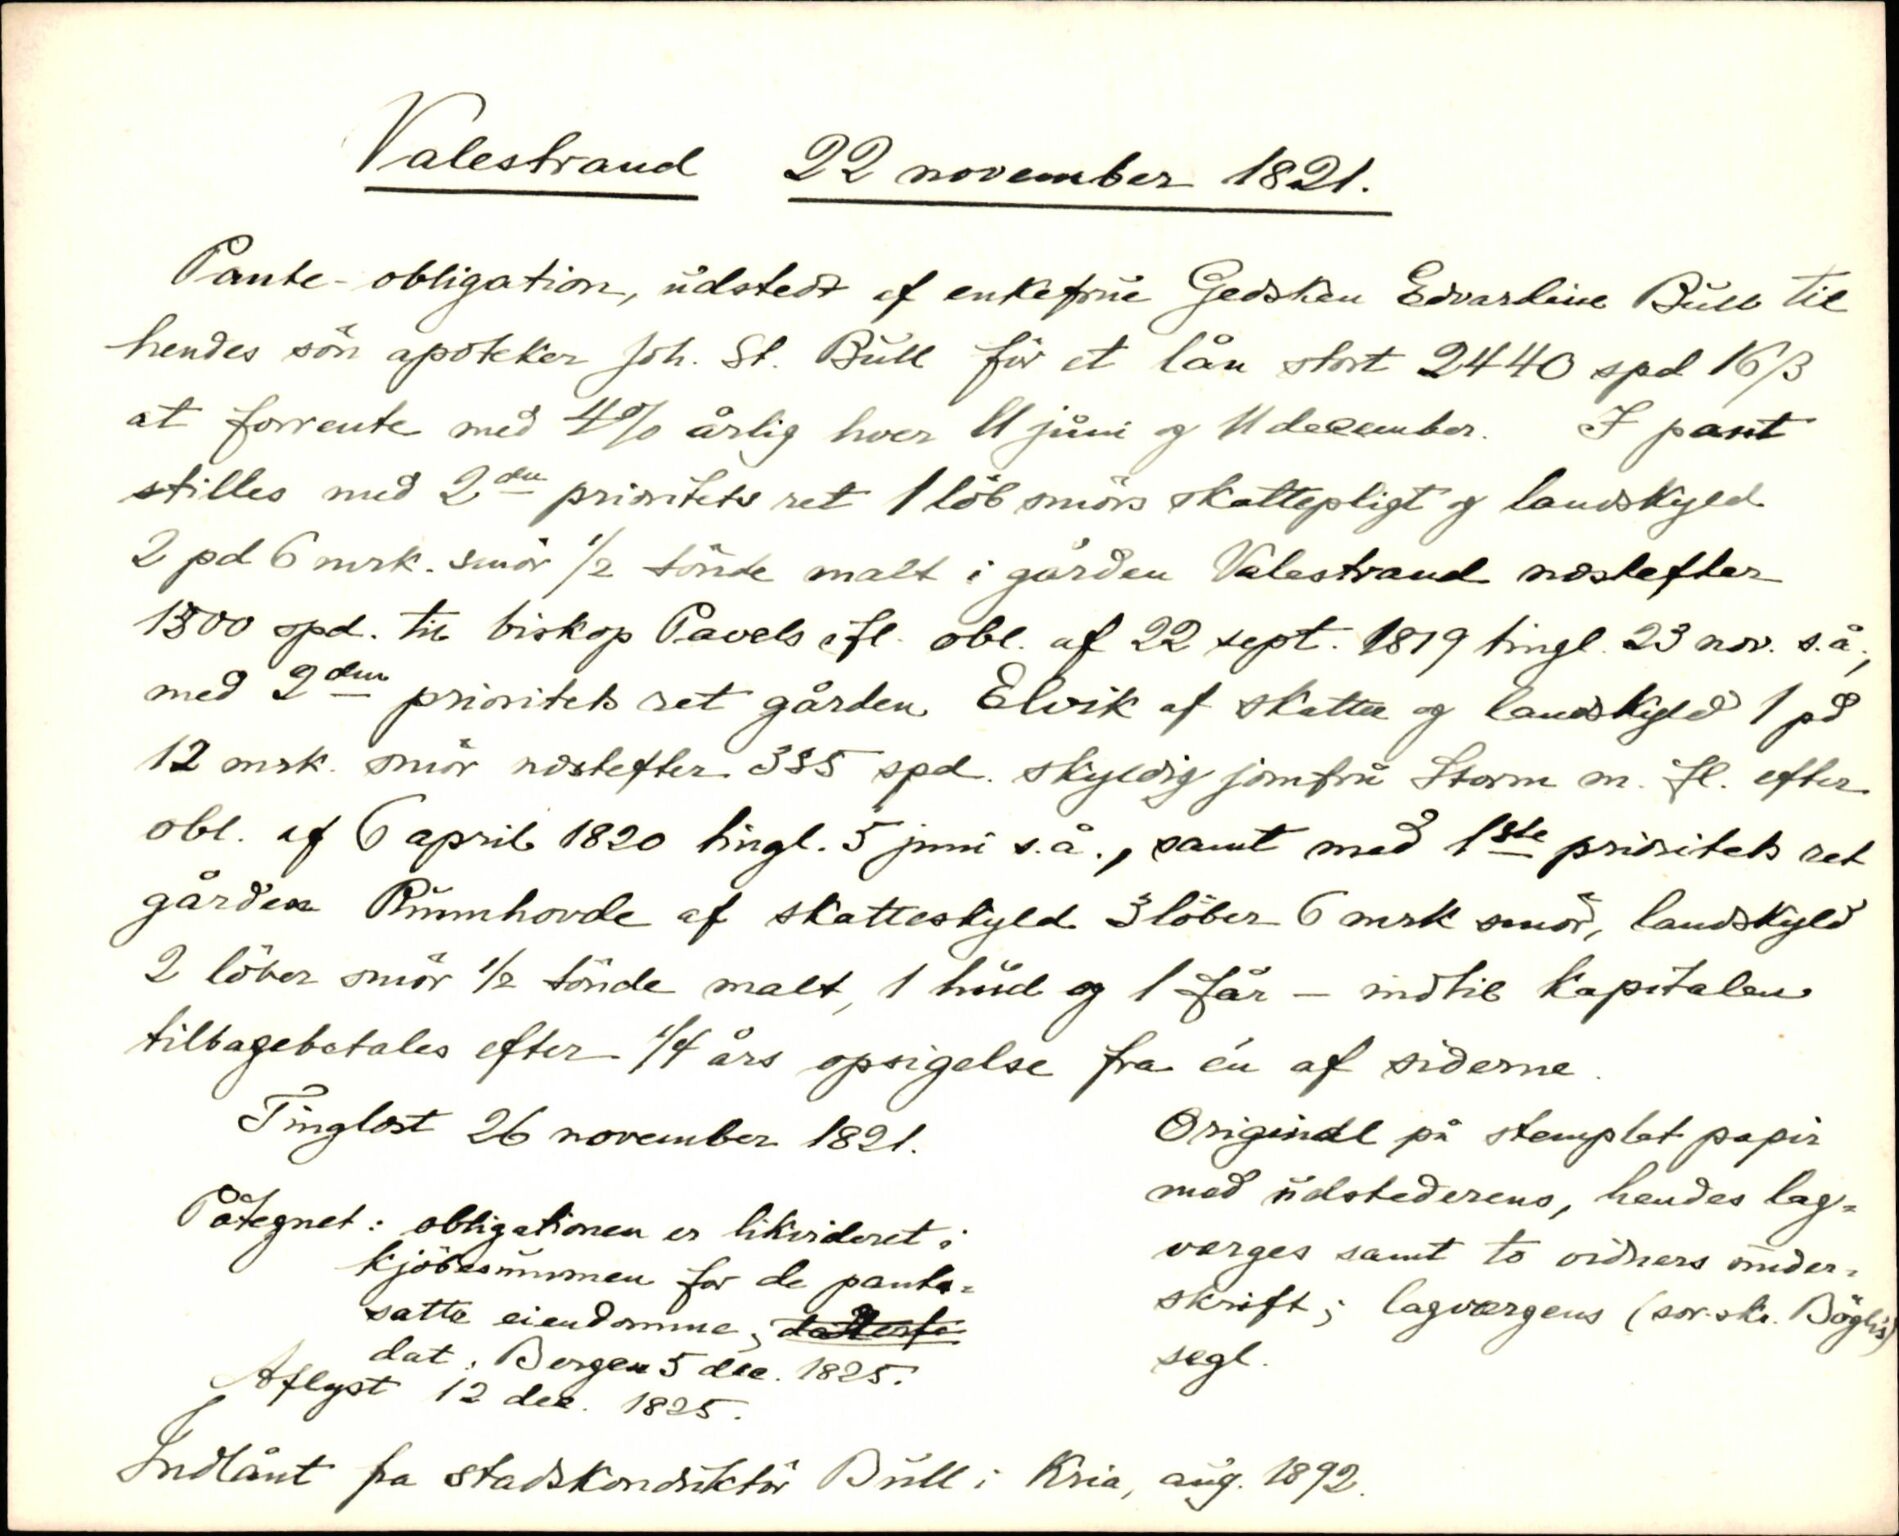 Valestrand 22 november 1821.
Pante-obligation, udstedt af enkefrue Gedsken Edvardine Bull til
hendes sön apoteker Joh. St. Bull for et lån stort 2440 spd 16 β
at forrente med 4% årlig hver 11 juni og 11 december. I pant
stilles med 2den prioritets ret 1 löb smörs skattepligt og landskyld
2 pd 6 mrk. smör 1/2 tönde malt i gården Valestrand næstefter
1500 spd. til biskop Pavels ifl. obl. af 22 sept. 1819 tingl. 23 nov. s.å.,
med 2den prioritets ret gården Elvik af skatte og landskyld 1 pd
12 mrk. smör næstefter 335 spd. skyldig jomfru Storm m. fl. efter
obl. af 6 april 1820 tingl. 5 juni s.å., samt med 1ste prioritets ret
gården Rimmhovde af skatteskyld 3 löber 6 mrk smör, landskyld
2 löber smör 1/2 tönde malt, 1 hud og 1 får – indtil kapitalen
tilbagebetales efter 1/4 års opsigelse fra én af siderne.
Tinglæst 26 november 1821.
Påtegnet: obligationen er likvideret i
kjöbesummen for de pante-
satte eiendomme,
dat. Bergen 5 dec. 1825.
Aflyst 12 dec. 1825.
Original på stemplet papir
med udstederens, hendes lag-
værges samt to vidners under-
skrift; lagværgens (sor.skr. Böghs)
segl.
Indlånt fra stadskonduktör Bull i Kria, aug. 1892.